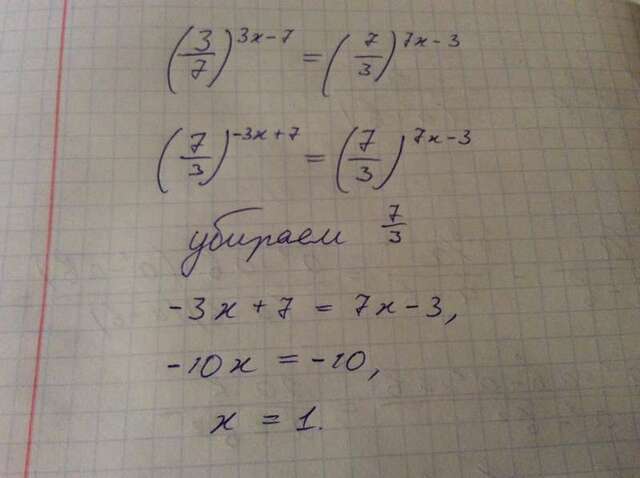 (3/7)^{3x-7} = (7/3)^{7x-3}
(7/3)^{-3x+7} = (7/3)^{7x-3}
убираем 7/3
-3x+7 = 7x-3,
-10x = -10,
x = 1.